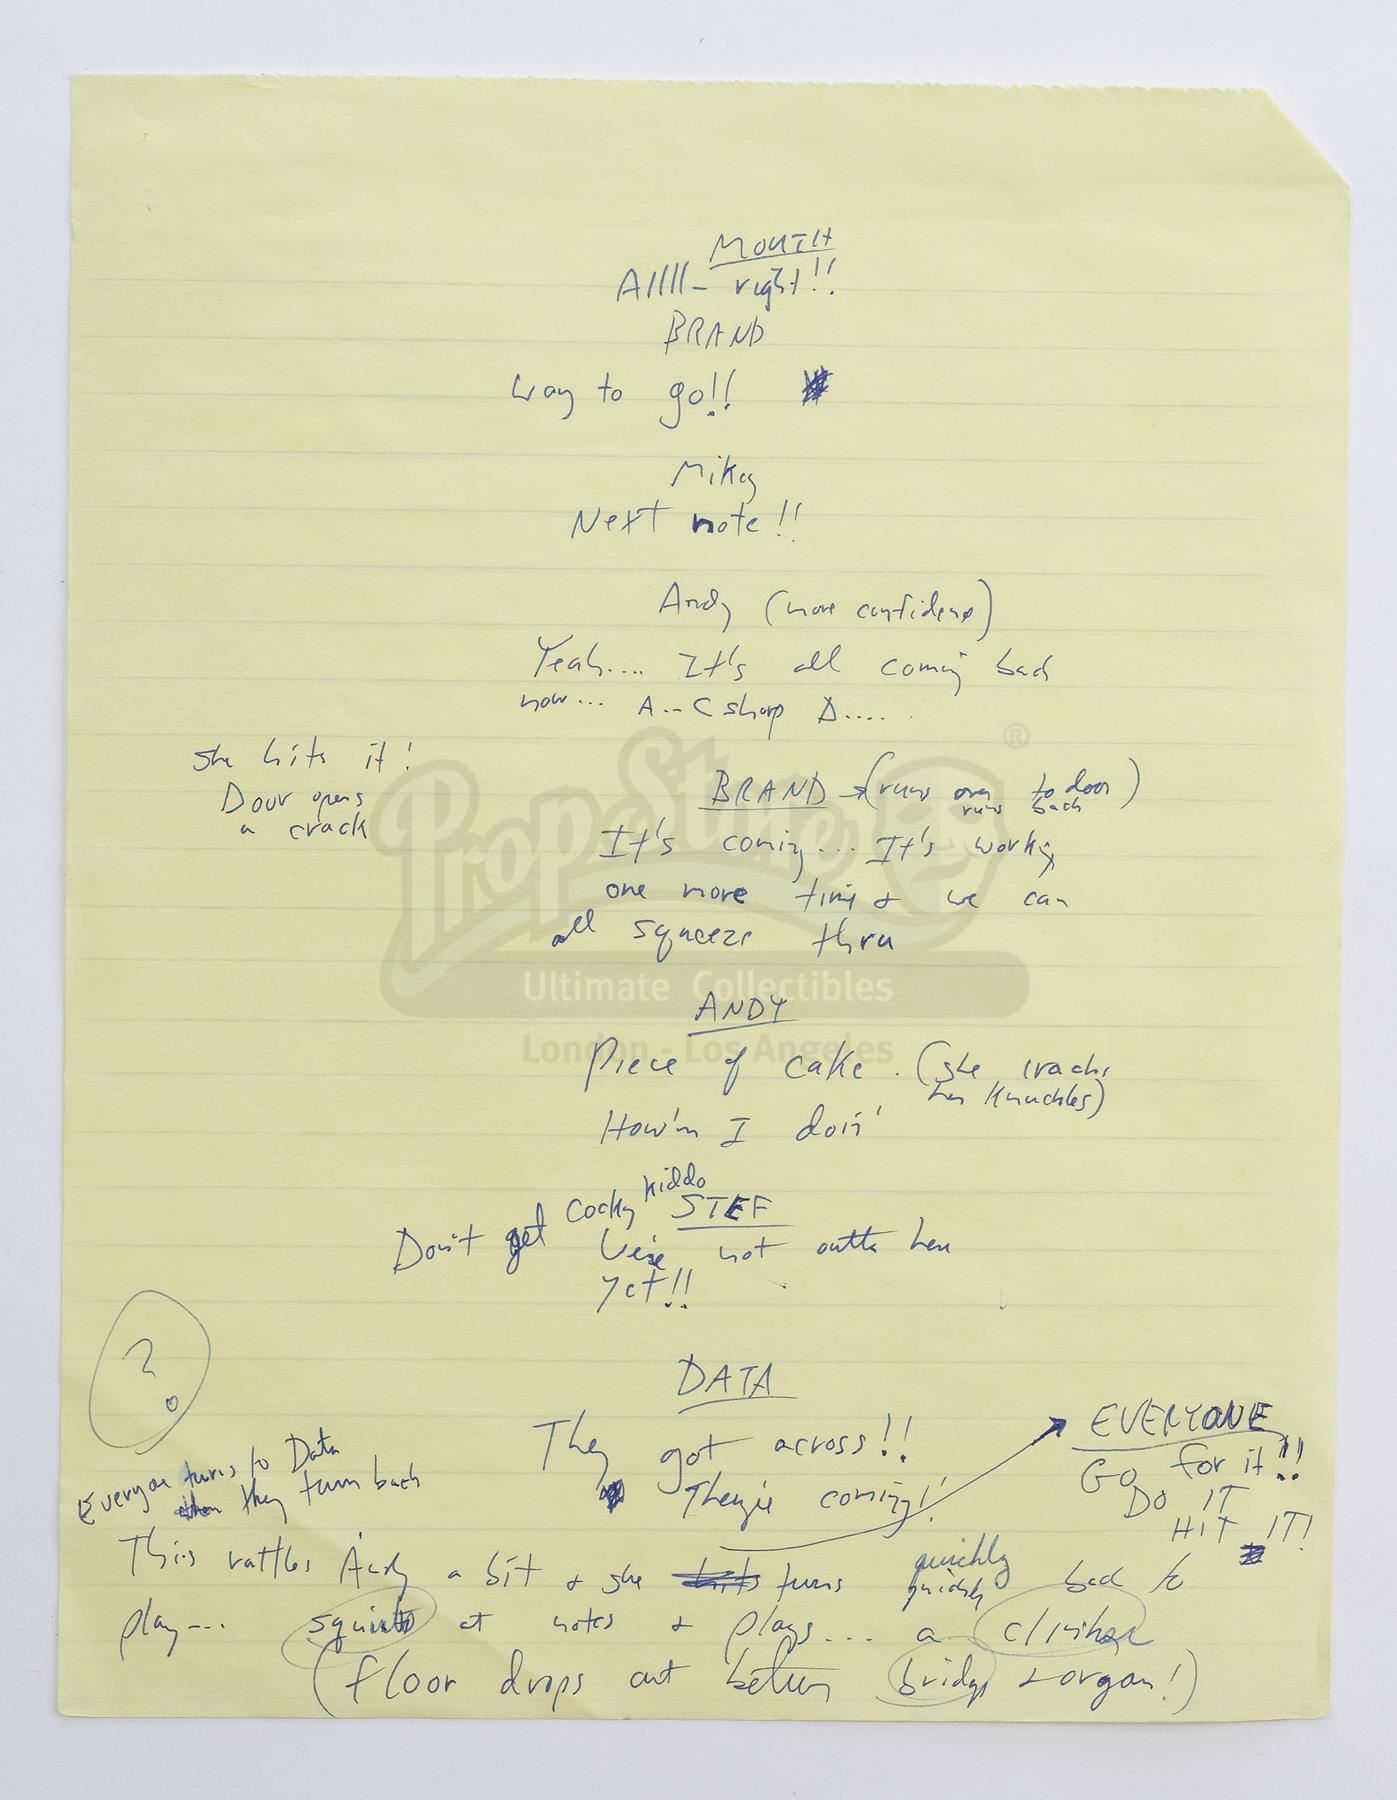 MOUTH
Allll- right!!
BRAND
Way to go!!
Mikey
Next note!!
Andy (more confidence)
Yeah.... It's all coming back
now... A--C sharp D....
she hits it!
Door opens
a crack
BRAND (runs over to door
runs back)
It's coming... It's working
one more time & we can
all squeeze thru
ANDY
Piece of cake. (she cracks
her knuckles)
How'm I doin'
STEF
Don't get cocky kiddo
We're not outta here
yet!!
?
DATA
They got across!!
They're coming!
EVERYONE
Go for it!!
DO IT
HIT IT!
Everyone turns to Data
then they turn back
This rattles Andy a bit & she turns quickly back to
play--- squints at notes & plays... a clinker
(floor drops out between bridge & organ!)
PropStore ®
Ultimate Collectibles
London - Los Angeles